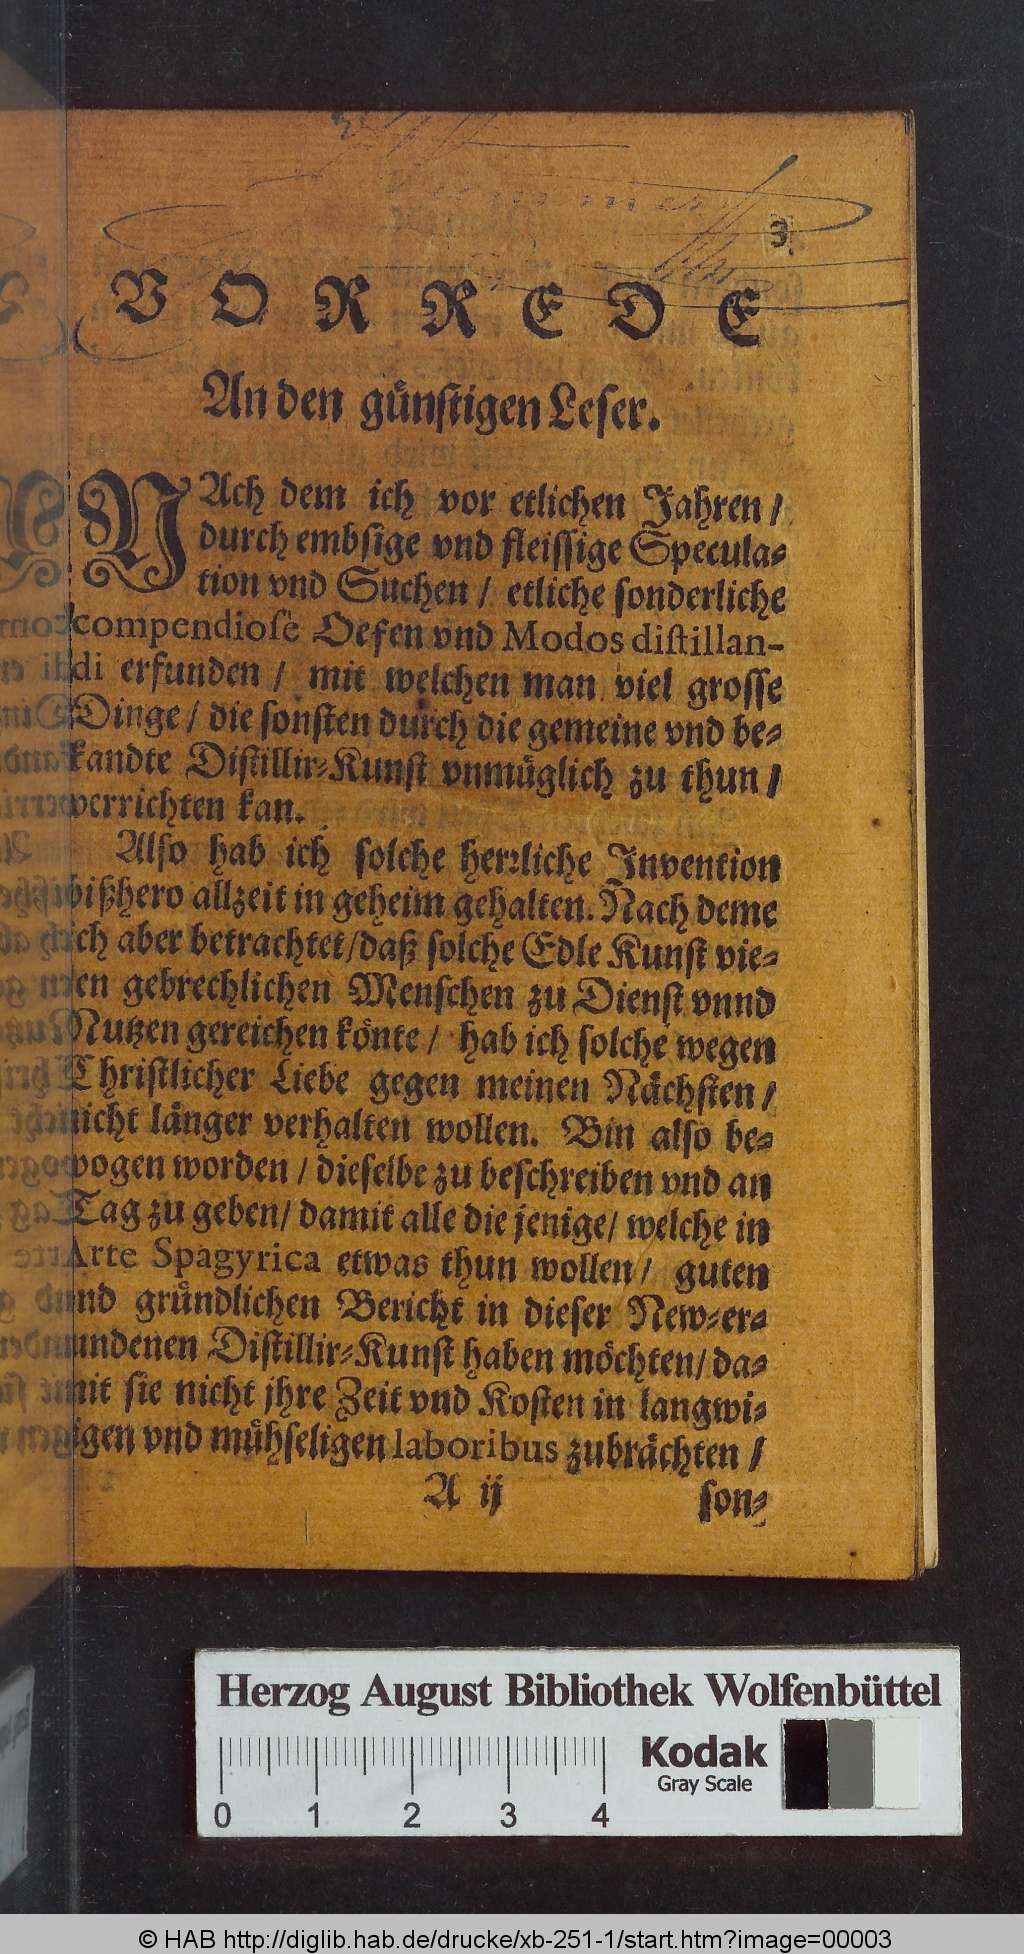 3.
VORREDE
An den gůnstigen Leser.
NAch dem ich vor etlichen Jahren /
durch embsige vnd fleissige Specula-
tion vnd Suchen / etliche sonderliche
compendiosè Oefen vnd Modos distillan-
di erfunden / mit welchen man viel grosse
Dinge / die sonsten durch die gemeine vnd be-
kandte Distillir-Kunst vnmůglich zu thun /
verrichten kan.
Also hab ich solche herꝛliche Invention
bißhero allzeit in geheim gehalten. Nach deme
ich aber betrachtet / daß solche Edle Kunst vie-
len gebrechlichen Menschen zu Dienst vnnd
Nutzen gereichen kônte / hab ich solche wegen
Christlicher Liebe gegen meinen Nåchsten /
nicht långer verhalten wollen. Bin also be-
wogen worden / dieselbe zu beschreiben vnd an
Tag zu geben / damit alle die jenige / welche in
Arte Spagyrica etwas thun wollen / guten
vnd grůndlichen Bericht in dieser New-er-
fundenen Distillir-Kunst haben môchten / da-
mit sie nicht jhre Zeit vnd Kosten in langwi-
rigen vnd můhseligen laboribus zubråchten /
A ij son-
Herzog August Bibliothek Wolfenbüttel
Kodak
Gray Scale
0 1 2 3 4
© HAB http://diglib.hab.de/drucke/xb-251-1/start.htm?image=00003